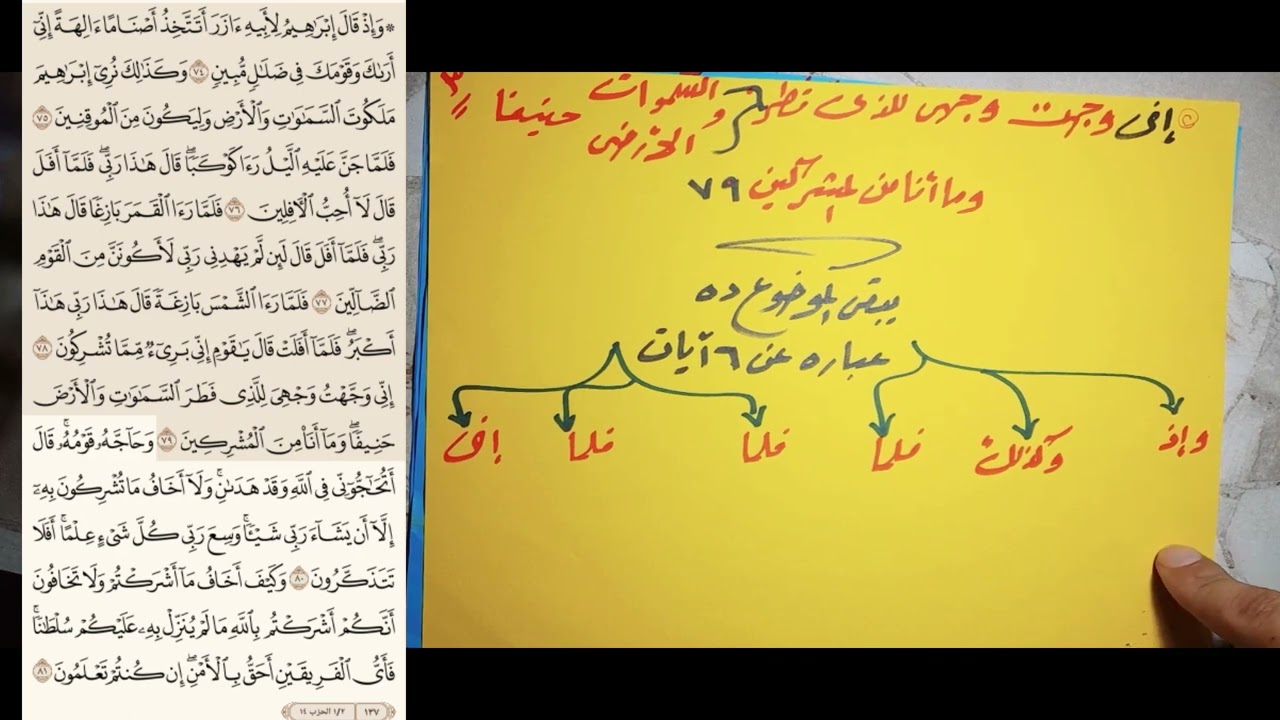 ۞ وَإِذْ قَالَ إِبْرَٰهِيمُ لِأَبِيهِ ءَازَرَ أَتَتَّخِذُ أَصْنَامًا ءَالِهَةً إِنِّىٓ
أَرَىٰكَ وَقَوْمَكَ فِى ضَلَٰلٍ مُّبِينٍ ٧٤ وَكَذَٰلِكَ نُرِىٓ إِبْرَٰهِيمَ
مَلَكُوتَ ٱلسَّمَٰوَٰتِ وَٱلْأَرْضِ وَلِيَكُونَ مِنَ ٱلْمُوقِنِينَ ٧٥
فَلَمَّا جَنَّ عَلَيْهِ ٱلَّيْلُ رَءَا كَوْكَبًا ۖ قَالَ هَٰذَا رَبِّى ۖ فَلَمَّآ أَفَلَ
قَالَ لَآ أُحِبُّ ٱلْءَافِلِينَ ٧٦ فَلَمَّا رَءَا ٱلْقَمَرَ بَازِغًا قَالَ هَٰذَا
رَبِّى ۖ فَلَمَّآ أَفَلَ قَالَ لَئِن لَّمْ يَهْدِنِى رَبِّى لَأَكُونَنَّ مِنَ ٱلْقَوْمِ
ٱلضَّآلِّينَ ٧٧ فَلَمَّا رَءَا ٱلشَّمْسَ بَازِغَةً قَالَ هَٰذَا رَبِّى هَٰذَآ
أَكْبَرُ ۖ فَلَمَّآ أَفَلَتْ قَالَ يَٰقَوْمِ إِنِّى بَرِىٓءٌ مِّمَّا تُشْرِكُونَ ٧٨
إِنِّى وَجَّهْتُ وَجْهِىَ لِلَّذِى فَطَرَ ٱلسَّمَٰوَٰتِ وَٱلْأَرْضَ
حَنِيفًا ۖ وَمَآ أَنَا۠ مِنَ ٱلْمُشْرِكِينَ ٧٩ وَحَآجَّهُۥ قَوْمُهُۥ ۚ قَالَ
أَتُحَٰٓجُّوٓنِّى فِى ٱللَّهِ وَقَدْ هَدَىٰنِ ۚ وَلَآ أَخَافُ مَا تُشْرِكُونَ بِهِۦٓ
إِلَّآ أَن يَشَآءَ رَبِّى شَيْـًٔا ۗ وَسِعَ رَبِّى كُلَّ شَىْءٍ عِلْمًا ۗ أَفَلَا
تَتَذَكَّرُونَ ٨٠ وَكَيْفَ أَخَافُ مَآ أَشْرَكْتُمْ وَلَا تَخَافُونَ
أَنَّكُمْ أَشْرَكْتُم بِٱللَّهِ مَا لَمْ يُنَزِّلْ بِهِۦ عَلَيْكُمْ سُلْطَٰنًا ۚ
فَأَىُّ ٱلْفَرِيقَيْنِ أَحَقُّ بِٱلْأَمْنِ ۖ إِن كُنتُمْ تَعْلَمُونَ ٨١
١٣٧ ١/٢ الحزب ١٤
إنى وجهت وجهى للذى فطر السموات والأرض حنيفا
وما أنا من المشركين ٧٩
يبقى الموضوع ده
عباره عن ٦ آيات
وإذ وكذلك فلما فلما فلما إنى